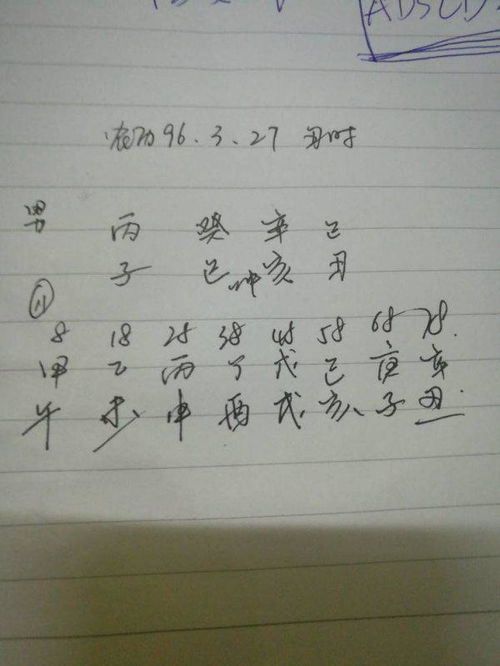 ADSCD
农历96.3.27 丑时
男 丙 癸 辛 己
子 巳 冲 亥 丑
8 18 28 38 48 58 68 78
甲 乙 丙 丁 戊 己 庚 辛
午 未 申 酉 戌 亥 子 丑